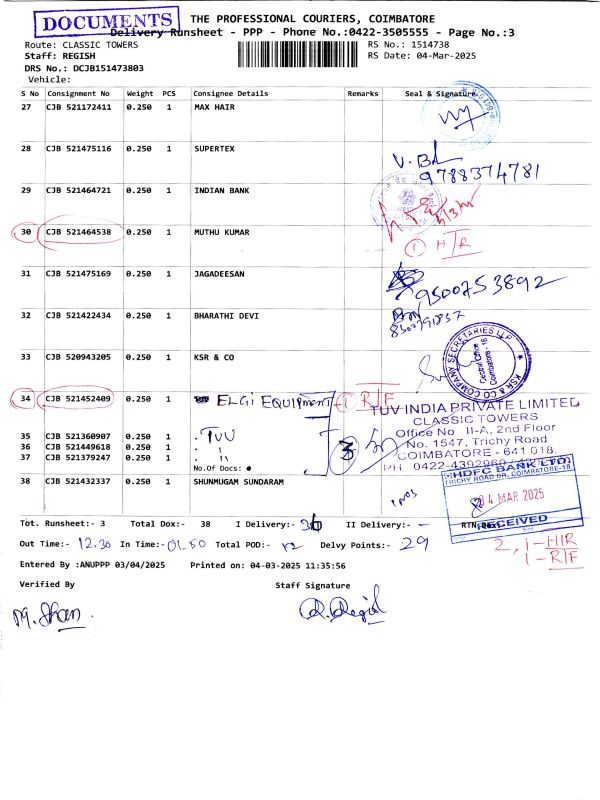 DOCUMENTS
THE PROFESSIONAL COURIERS, COIMBATORE
Delivery Runsheet - PPP - Phone No.:0422-3505555 - Page No.:3
Route: CLASSIC TOWERS
RS No.: 1514738
Staff: REGISH
RS Date: 04-Mar-2025
DRS No.: DCJB151473803
Vehicle:
S No Consignment No Weight PCS Consignee Details Remarks Seal & Signature
27 CJB 521172411 0.250 1 MAX HAIR
28 CJB 521475116 0.250 1 SUPERTEX
9788374781
29 CJB 521464721 0.250 1 INDIAN BANK
30 CJB 521464538 0.250 1 MUTHU KUMAR
1 H/R
31 CJB 521475169 0.250 1 JAGADEESAN
9500753892
32 CJB 521422434 0.250 1 BHARATHI DEVI
33 CJB 520943205 0.250 1 KSR & CO
KSR & CO COMPANY SECRETARIES LLP
Central Office
Coimbatore - 18
34 CJB 521452409 0.250 1 ELGI EQUIPment 1 R/F
TUV INDIA PRIVATE LIMITED
CLASSIC TOWERS
Office No II-A, 2nd Floor
No. 1547, Trichy Road
COIMBATORE - 641 018.
35 CJB 521360907 0.250 1 TUV
36 CJB 521449618 0.250 1 "
37 CJB 521379247 0.250 1 "
3
No.Of Docs:
38 CJB 521432337 0.250 1 SHUNMUGAM SUNDARAM
HDFC BANK LTD.
TRICHY ROAD BR, COIMBATORE-18.
04 MAR 2025
RECEIVED
Tot. Runsheet:- 3 Total Dox:- 38 I Delivery:- 36 II Delivery:- -
2, 1-H/R
1-R/F
Out Time:- 12.30 In Time:- 01.50 Total POD:- 12 Delvy Points:- 29
Entered By :ANUPPP 03/04/2025 Printed on: 04-03-2025 11:35:56
Verified By Staff Signature